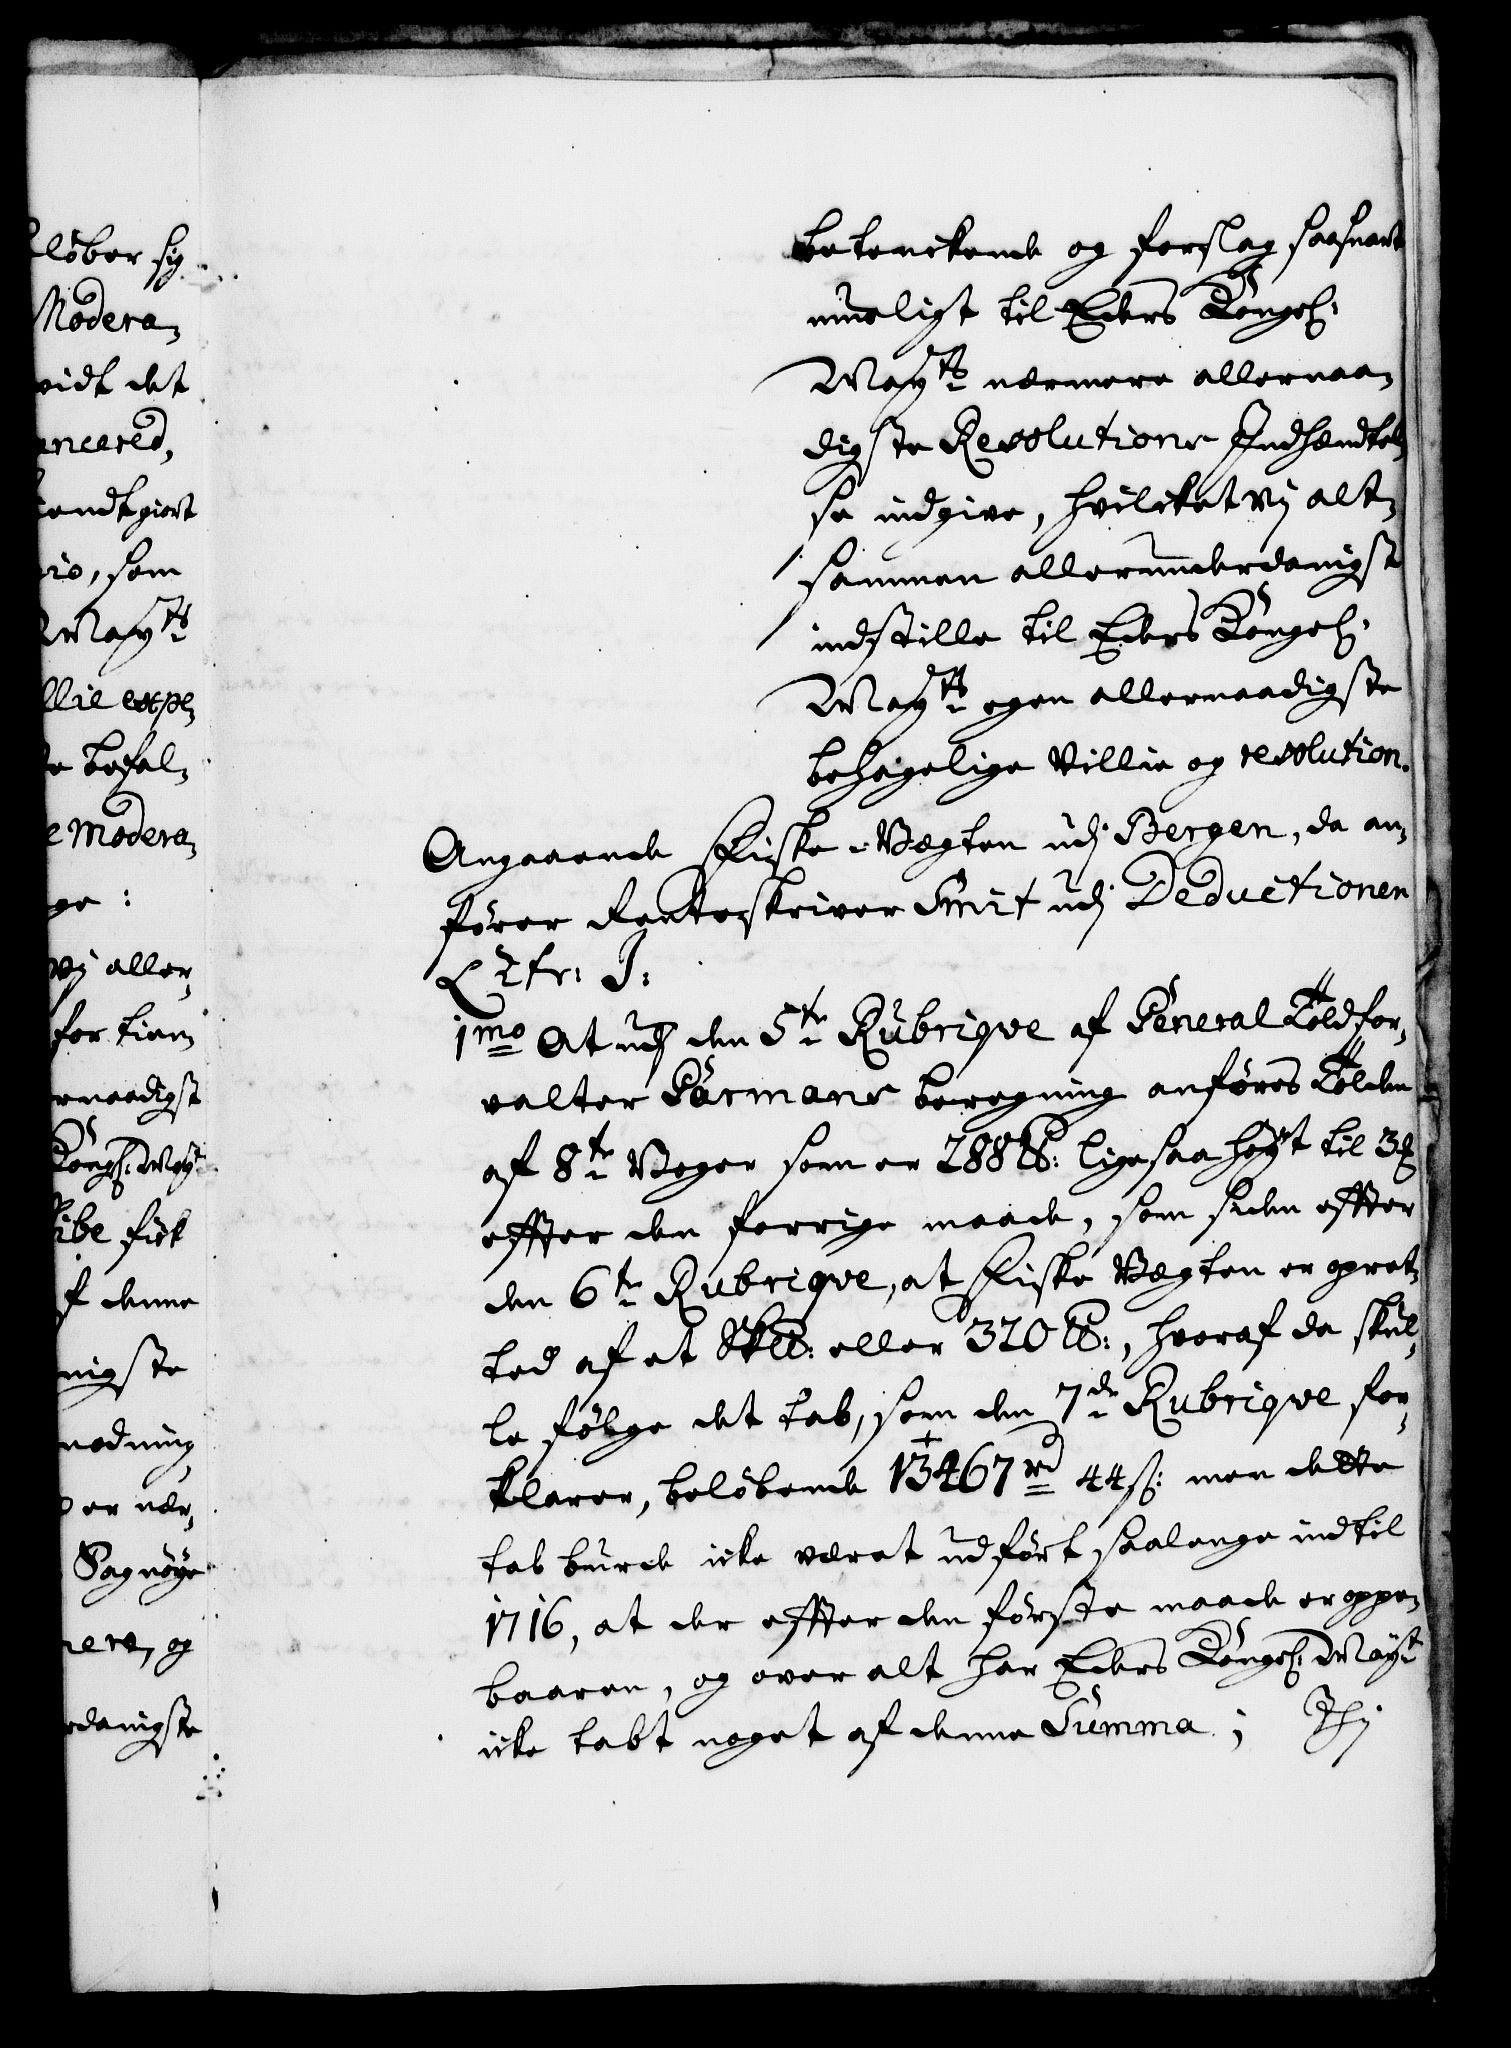 løber sig
Modera-
vidt det
ancered,
iendtgiort
rio, som
Mayts
llie expe-
te befal-
e Modera-
ge:
vij aller-
for tiem
rnaadigst
Kongl: Mayt
ibe fisk
f denne
nigste
nodning
er nær-
Sag nöye
nere, og
rdanigste
betenckende og forslag saasnart
mueligt til Eders Kongel:
Mayts nærmere allernaa-
digste Resolutions Indhændtel-
se indgive, hvilcket vij alt-
sammen allerunderdanigst
indstille til Eders Kongel:
Mayts egen allernaadigste
behagelige Villie og resolution.
Angaaende Fiske-Vegten udj Bergen, da an-
fører Renteskriver Smit udj Deductionen
Litr: J:
1mo At udj den 5te Rubriqve af General Toldfor-
valter Garmans beregning anføres Tolden
af 8te Voger som er 288 ℔: ligesaa høyt til 3 ß
effter den forrige maade, som siden effter
den 6te Rubriqve, at Fiske Vegten er opret-
ted af et Sk℔: eller 320 ℔:, hvoraf da skul-
le følge det tab, som den 7de Rubriqve for-
klarer, beløbende 13467 rd 44 ß: men dette
tab burde icke været udført saalenge indtil
1716, at der effter den første maade er oppe-
baaren, og over alt har Eders Kongel: Mayt
icke tabt noget af denne Summa; Thj